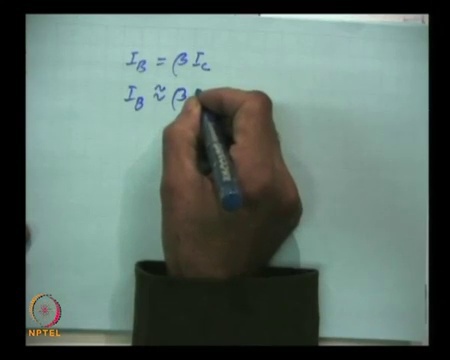 I_B = β I_C
I_B ≈ β
NPTEL